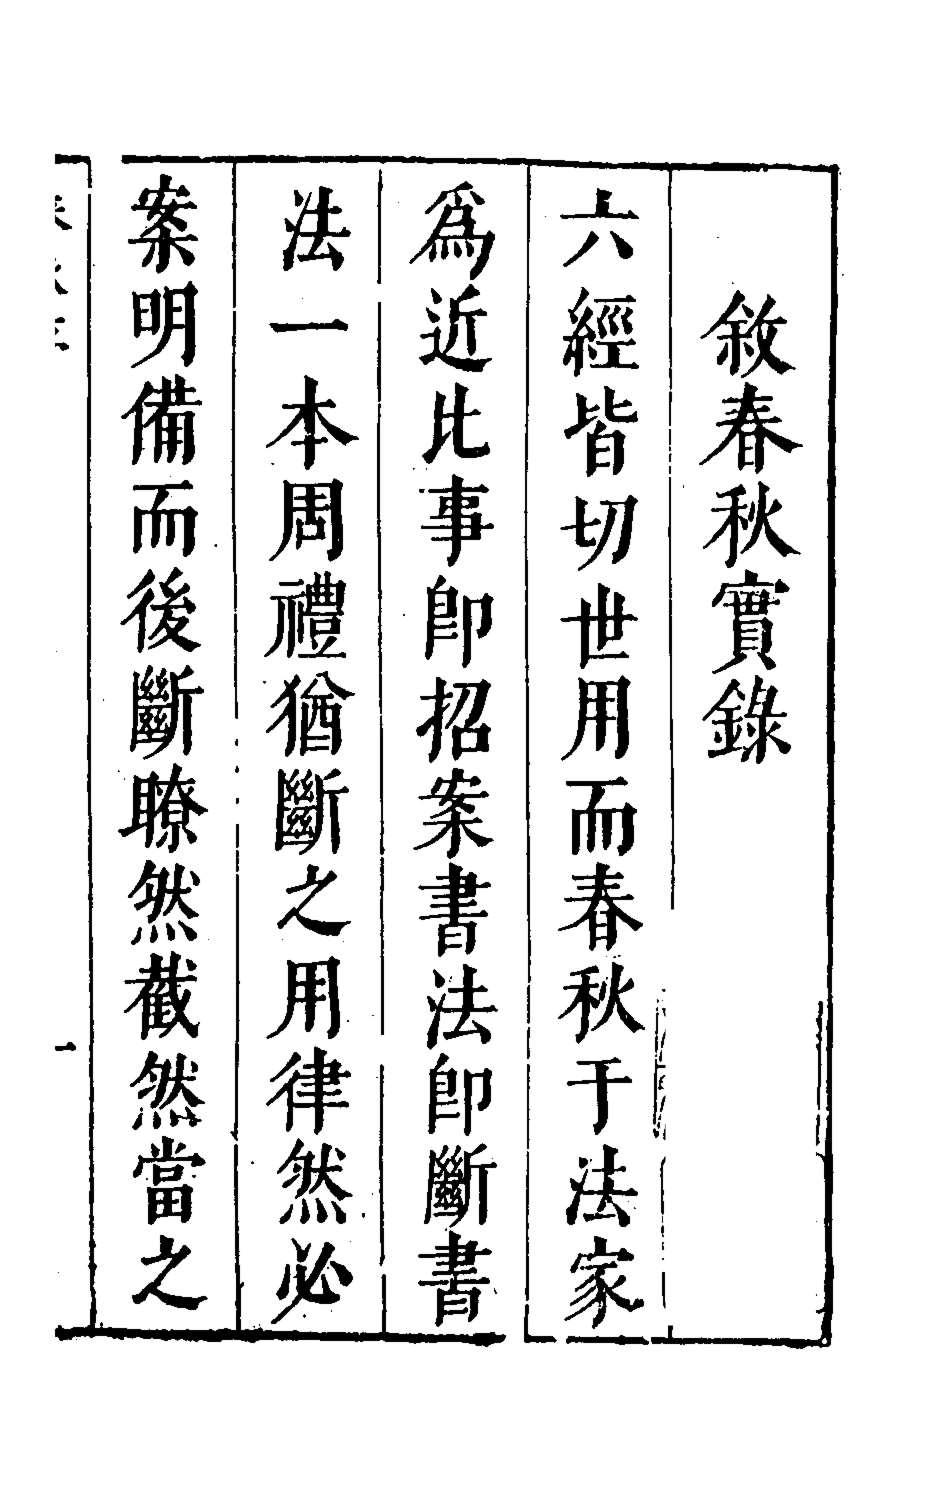 敘春秋實錄
六經皆切世用而春秋于法家
爲近比事卽招案書法卽斷書
法一本周禮猶斷之用律然必
案明備而後斷瞭然截然當之
一